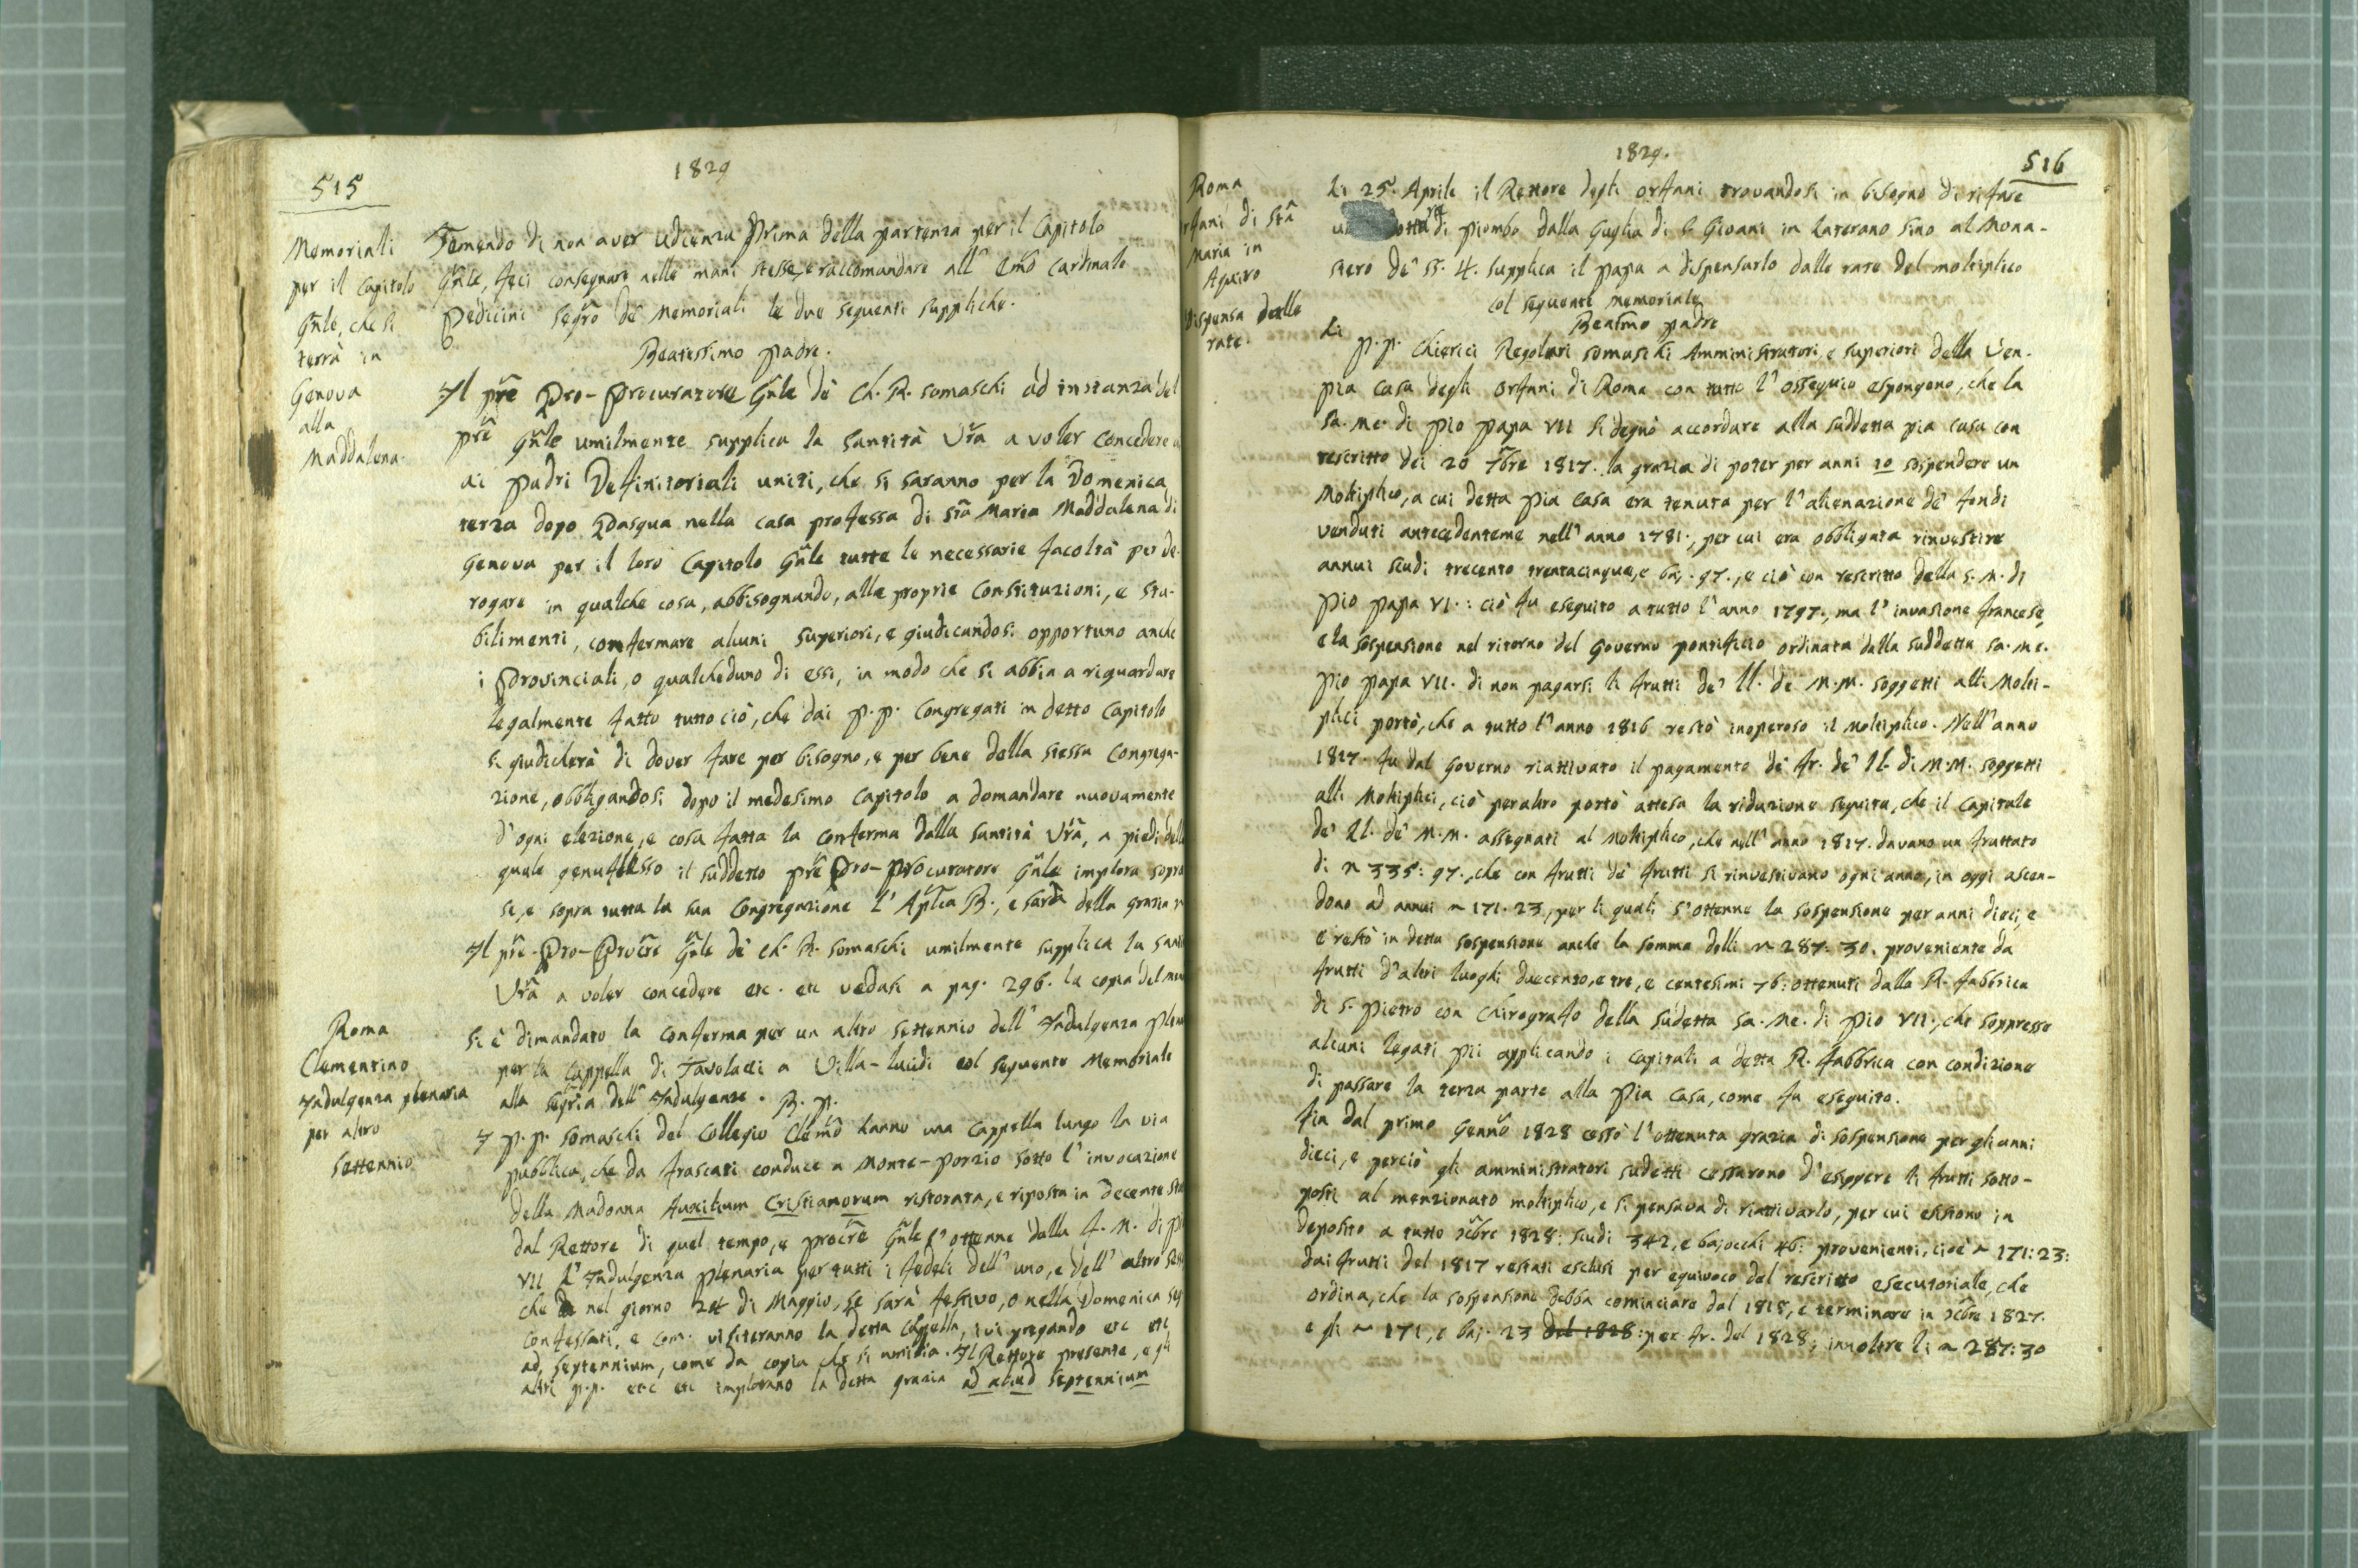 515
1829
Memoriali
per il Capitolo
Gñle, che si
terrà in
Genova
alla
Maddalena.
Temendo di non aver udienza prima della partenza per il Capitolo
Gñle, feci consegnare nelle mani stesse, e raccomandare all' Emõ Cardinale
Pedicini Segrõ de' Memoriali le due seguenti suppliche.
Beatissimo Padre.
Il Prẽ Pro-Procuratore Gñle de' Ch. R. Somaschi ad instanza del
Prẽ Gñle umilmente supplica la Santità Vr̃a a voler concedere
ai Padri Definitoriali uniti, che si saranno per la Domenica
terza dopo Pasqua nella casa professa di Stã Maria Maddalena di
Genova per il loro Capitolo Gñle tutte le necessarie facoltà per de-
rogare in qualche cosa, abbisognando, alle proprie Constituzioni, e sta-
bilimenti, confermare alcuni Superiori, e giudicandosi opportuno anche
i Provinciali, o qualcheduno di essi, in modo che si abbia a riguardare
legalmente fatto tutto ciò, che dai P.P. Congregati in detto Capitolo
si giudicherà di dover fare per bisogno, e per bene della stessa Congrega-
zione, obbligandosi dopo il medesimo Capitolo a domandare nuovamente
d'ogni elezione, e cosa fatta la conferma dalla Santità Vr̃a, a piedi della
quale genuflesso il suddetto Prẽ Pro-Procuratore Gñle implora sopra
se, e sopra tutta la sua Congregazione l'Aplĩca B., e sarà della grazia
Il Prẽ Pro-Procrẽ Gñle de' Ch. R. Somaschi umilmente supplica la
Vr̃a a voler concedere etc. etc vedasi a pag. 296. la copia del
Roma
Clementino
Indulgenza plenaria
per altro
settennio
Si è dimandato la conferma per un altro settennio dell' Indulgenza
per la Cappella di Tavolacci a Villa-lucidi col seguente Memoriale
alla Segrĩa dell' Indulgenze. B. P.
I P.P. Somaschi del Collegio Clem̃o hanno una Cappella lungo la via
pubblica, che da Frascati conduce a Monte-porzio sotto l'invocazione
della Madonna Auxilium Cristianorum ristorata, e riposta in decente
dal Rettore di quel tempo, e Procrẽ Gñle s'ottenne dalla f. M. di
VII l'Indulgenza plenaria per tutti i fedeli dell' uno, e dell' altro
che nel giorno 24 di Maggio, se sarà festivo, o nella Domenica
confessati, e com. visiteranno la detta Cappella, ivi pregando etc etc
ad septennium, come da copia che si umilia. Il Rettore presente, e gli
altri P.P. etc etc implorano la detta grazia ad aliud septennium
1829.
516
Roma
Orfani di Stã
Maria in
Aquiro
Dispensa dalle
rate.
Li 25. Aprile il Rettore degli Orfani trovandosi in bisogno di rifare
di piombo dalla Guglia di S. Giovani in Laterano sino al Mona-
stero de' SS. 4. supplica il Papa a dispensarlo dalle rate del moltiplico
col seguente memoriale
Beatm̃o Padre
Li P.P. Chierici Regolari Somaschi Amministratori, e Superiori della Ven.
Pia Casa degli Orfani di Roma con tutto l'ossequio espongono, che la
Sa. Me. di Pio Papa VII si degnò accordare alla suddetta pia casa con
rescritto dei 20 7bre 1817. la grazia di poter per anni 10 sospendere un
Moltiplico, a cui detta Pia Casa era tenuta per l'alienazione de' fondi
venduti antecedenteme nell' anno 1781., per cui era obbligata rinvestire
annui scudi trecento trentacinque, e baj. 97., e ciò con rescritto della S. M. di
Pio Papa VI.: ciò fu eseguito a tutto l'anno 1797., ma l'invasione francese,
e la sospensione nel ritorno del Governo pontificio ordinata dalla suddetta Sa. Me.
Pio Papa VII. di non pagarsi li frutti de' LL. de' M.M. soggetti alli Molti-
plici portò, che a tutto l'anno 1816 restò inoperoso il Moltiplico. Nell' anno
1817. fu dal Governo riattivato il pagamento de' fr. de' LL. di M.M. soggetti
alli Moltiplici, ciò peraltro portò attesa la riduzione seguita, che il Capitale
de' LL. de' M.M. assegnati al Moltiplico, che nell' anno 1817. davano un fruttato
di ~ 335:97., che con frutti de' frutti si rinvestivano ogni anno, in oggi ascen-
dono ad annui ~ 171.23, per li quali s'ottenne la sospensione per anni dieci, e
e restò in detta sospensione anche la somma delli ~ 287:30. proveniente da
frutti d'altri luoghi duecento, e tre, e centesimi 76: ottenuti dalla R. Fabbrica
di S. Pietro con Chirografo della sudetta Sa. Me. di Pio VII., che soppresse
alcuni legati pii applicando i capitali a detta R. Fabbrica con condizione
di passare la terza parte alla Pia Casa, come fu eseguito.
Fin dal primo Gennõ 1828 cessò l'ottenuta grazia di sospensione per gli anni
dieci, e perciò gli amministratori sudetti cessarono d'esiggere li frutti sotto-
posti al menzionato moltiplico, e si pensava di riattivarlo, per cui esistono in
deposito a tutto Xb̃re 1828: scudi 342, e bajocchi 46: provenienti, cioè ~ 171:23:
dai frutti del 1817 restati esclusi per equivoco del rescritto esecutoriale, che
ordina, che la sospensione debba cominciare dal 1818, e terminare in Xb̃re 1827.
e gli ~ 171, e baj. 23 del 1828: per fr. del 1828; innoltre li ~ 287:30